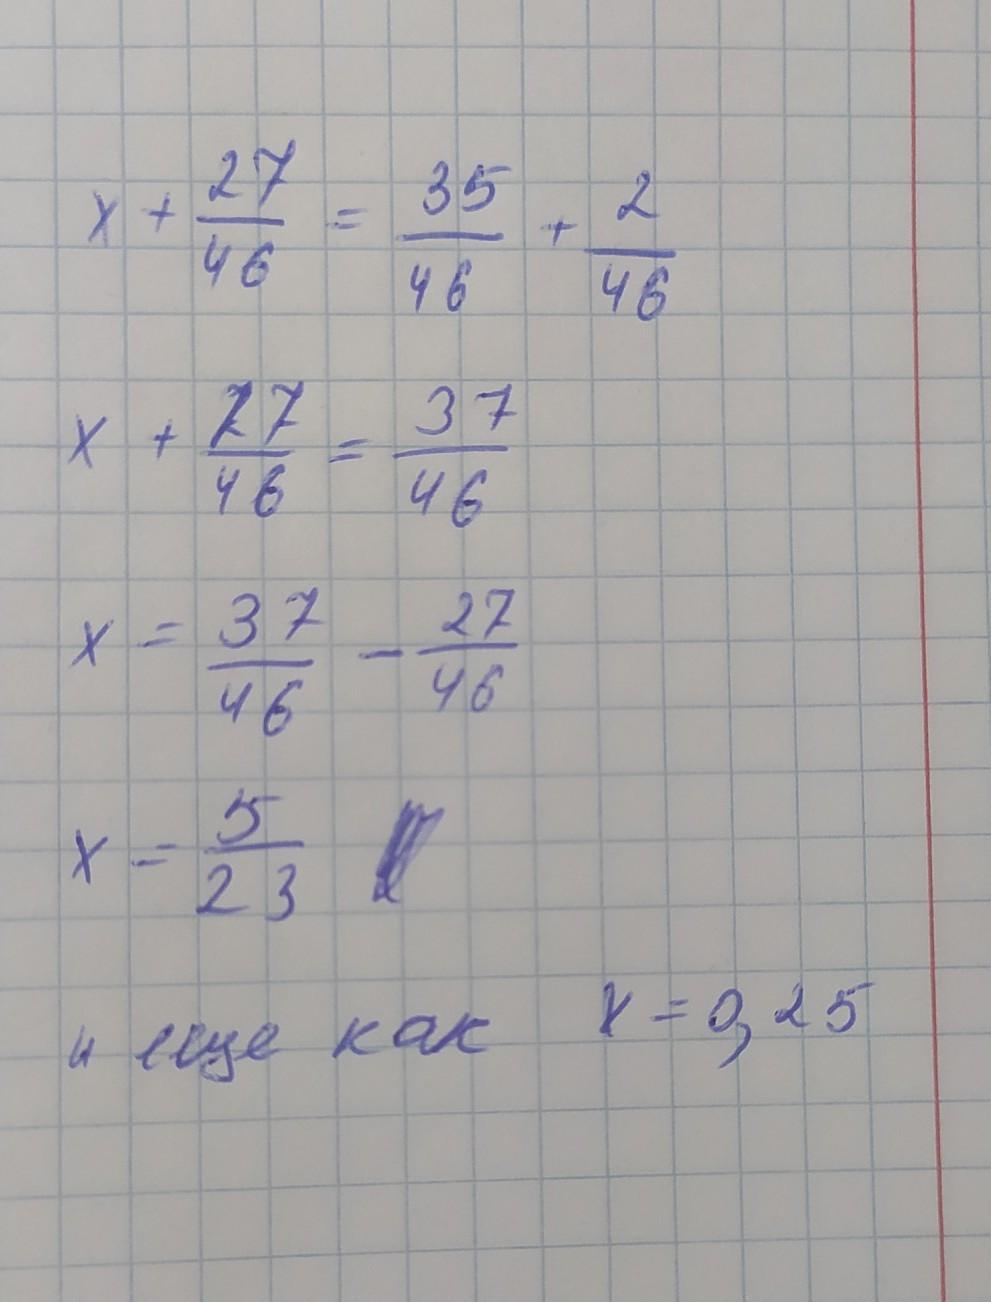 x + 27/46 = 35/46 + 2/46
x + 27/46 = 37/46
x = 37/46 - 27/46
x = 5/23
и еще как x = 0,25